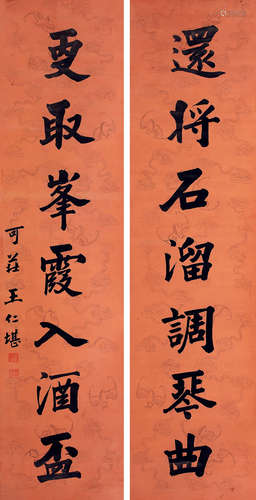 還将石溜調琴曲
更取峯霞入酒盃
可莊王仁堪